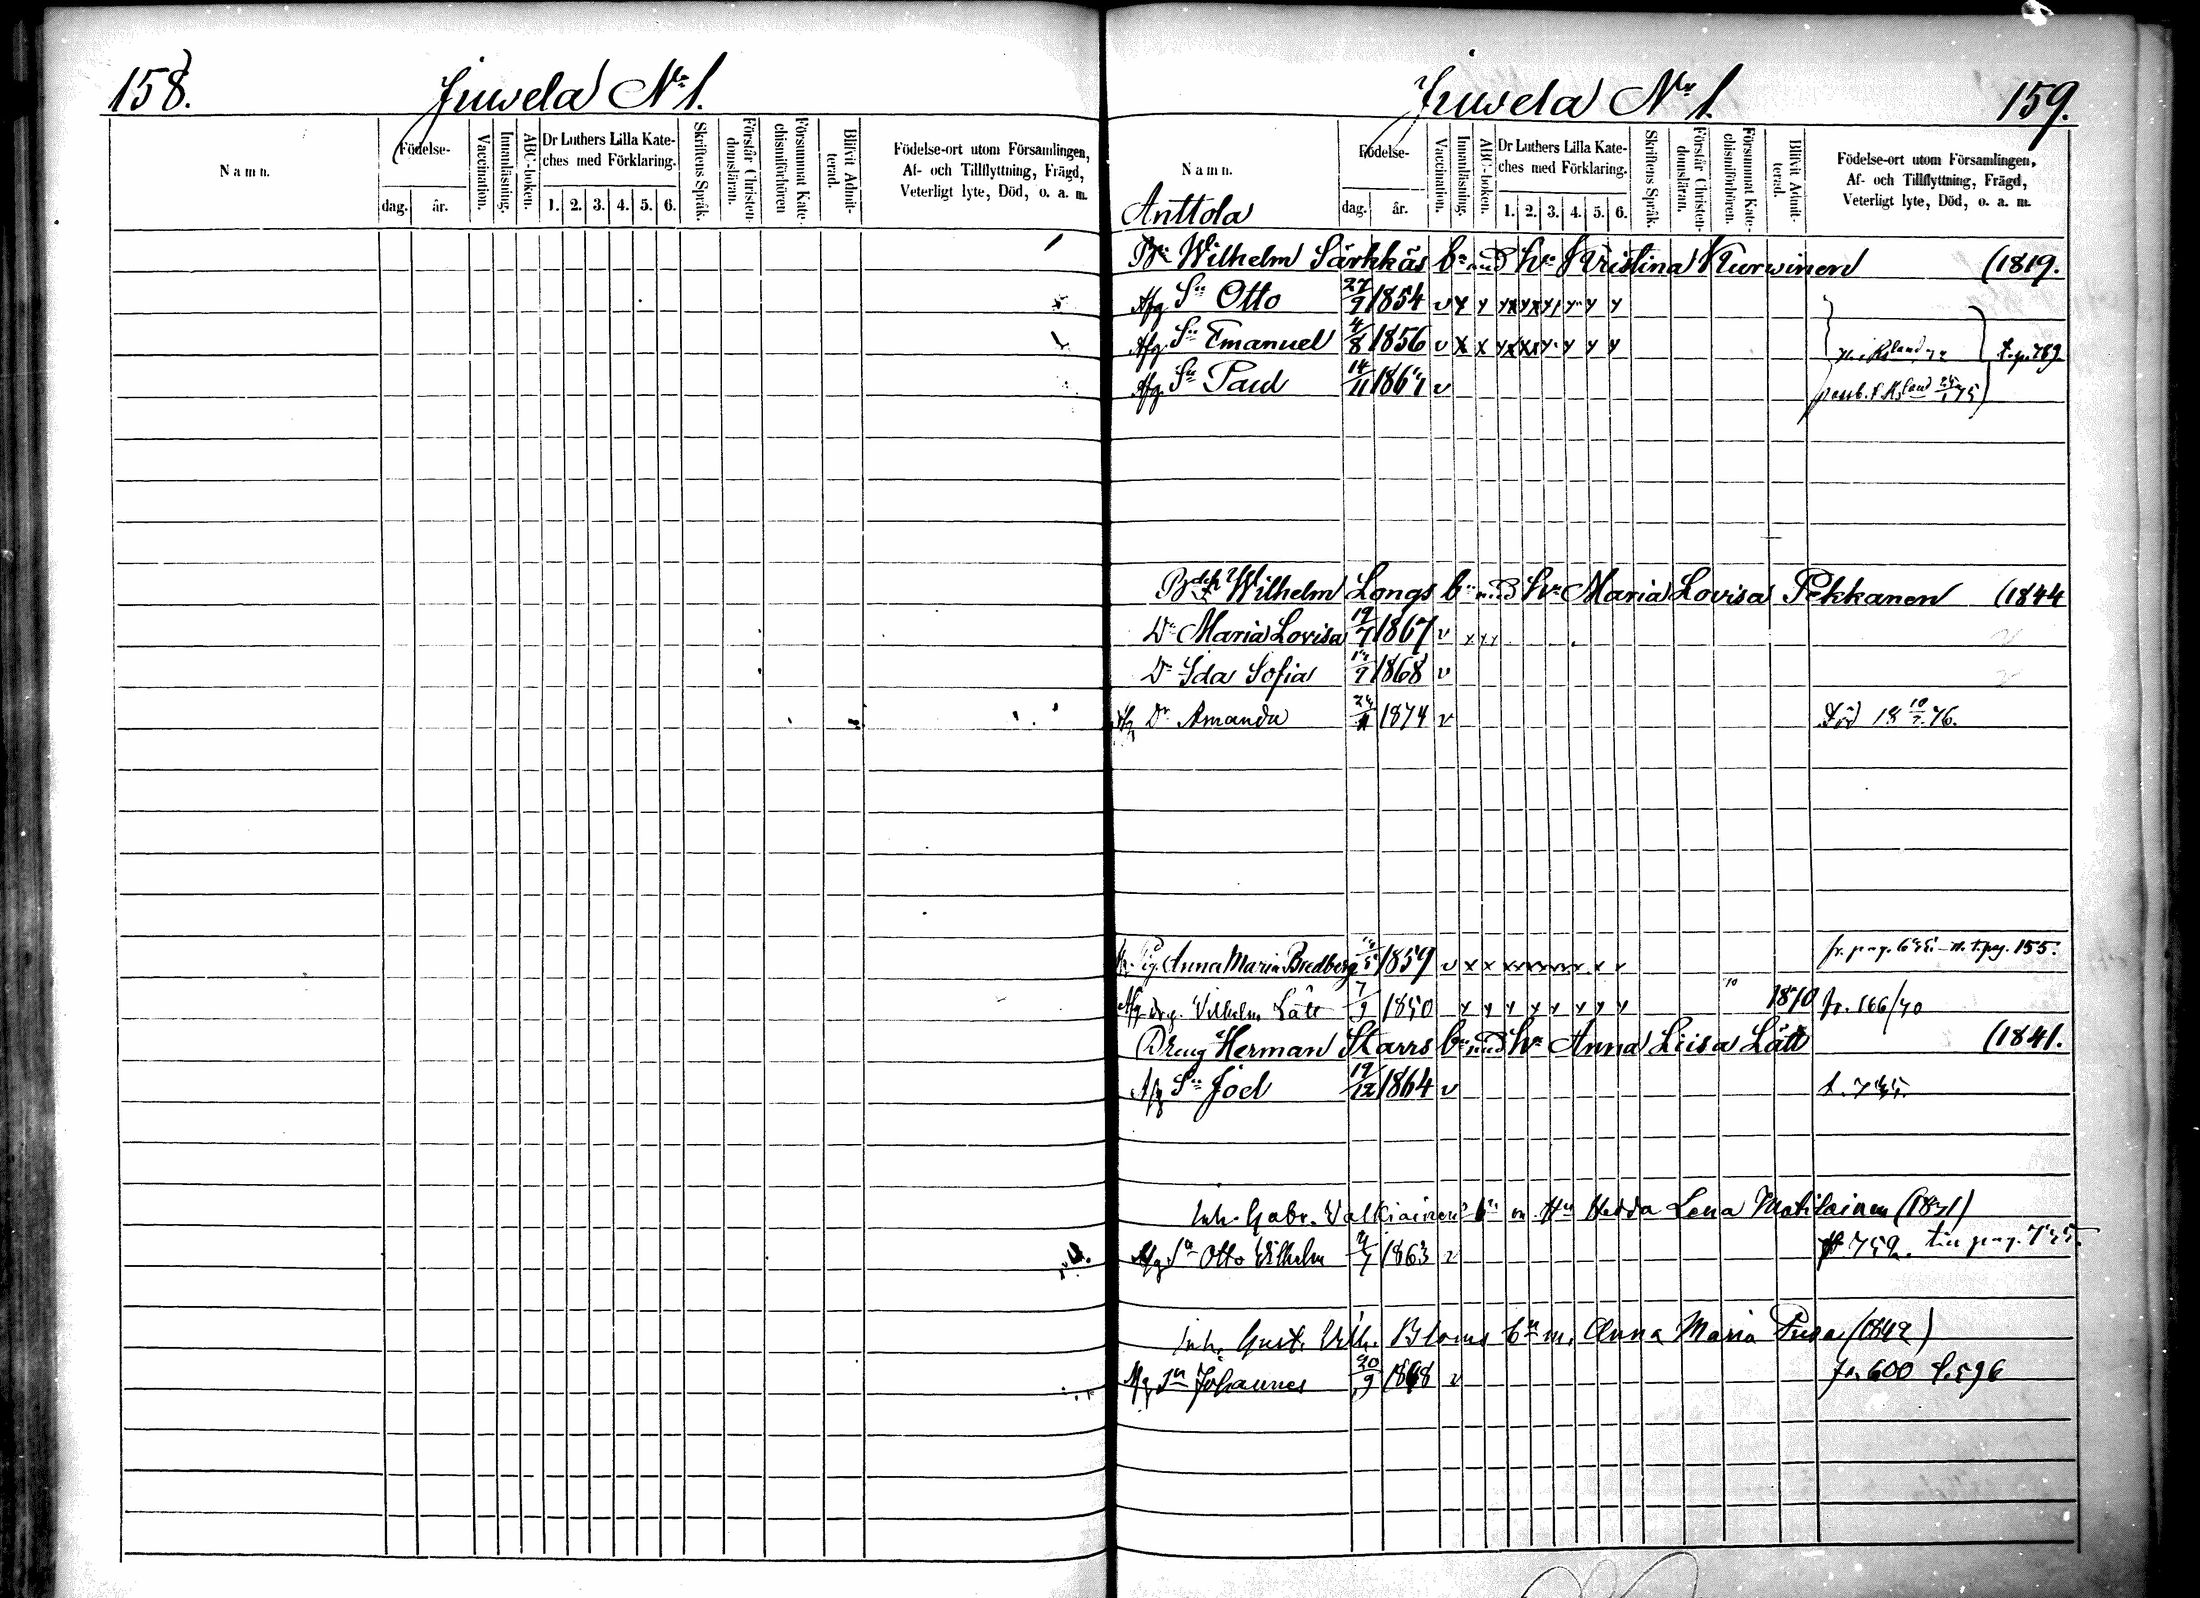 158.
Juwela No 1.
Namn.
Födelse-
dag.
år.
Vaccination.
Innanläsning.
ABC-boken.
Dr Luthers Lilla Kate-
ches med Förklaring.
1. 2. 3. 4. 5. 6.
Skriftens Språk.
Förstår Christen-
domsläran.
Försummat Kate-
chismiförhören
Blifvit Admit-
terad.
Födelse-ort utom Församlingen,
Af- och Tillflyttning, Frägd,
Veterligt lyte, Död, o. a. m.
Juwela No 1.
159.
Namn.
Anttola
Födelse-
dag.
år.
Vaccination.
Innanläsning.
ABC-boken.
Dr Luthers Lilla Kate-
ches med Förklaring.
1. 2. 3. 4. 5. 6.
Skriftens Språk.
Förstår Christen-
domsläran.
Försummat Kate-
chismiförhören.
Blifvit Admit-
terad.
Födelse-ort utom Församlingen,
Af- och Tillflyttning, Frägd,
Veterligt lyte, Död, o. a. m.
Wilhelm Särkkäs bn med hu Kristina Kurwinen (1819.
Afg Sn Otto 27/9 1854 v
Afg. Sn Emanuel 4/8 1856 v t. p. 789
Afg. Sn Paul 14/11 1861 v
Wilhelm Longs bn med hu Maria Lovisa Pekkanen (1844
Dr Maria Lovisa 19/7 1867 v
Dr Ida Sofia 1868 v
Dr Amanda 1874 v Död 18 10/7 76.
Pig. Anna Maria Bredberg 1859 v t. pag. 155.
Afg drg. Vilhelm Lätt 7/9 1850 1870 fr. 166/70
Dreng Herman Starrs bn med hu Anna Liisa Lätt (1841.
Afg Sn Joel 19/12 1864 v
Inh. Gabr. Valkiainens bn m. Hu Hedda Lena Matilainen
Afg Sn Otto Wilhelm 1863 v
Inh. Gust. Vilh. Bloms bn m. Anna Maria Pusa (1842)
Afg Sn Johannes 20/9 1868 v fr. 600 t. 596